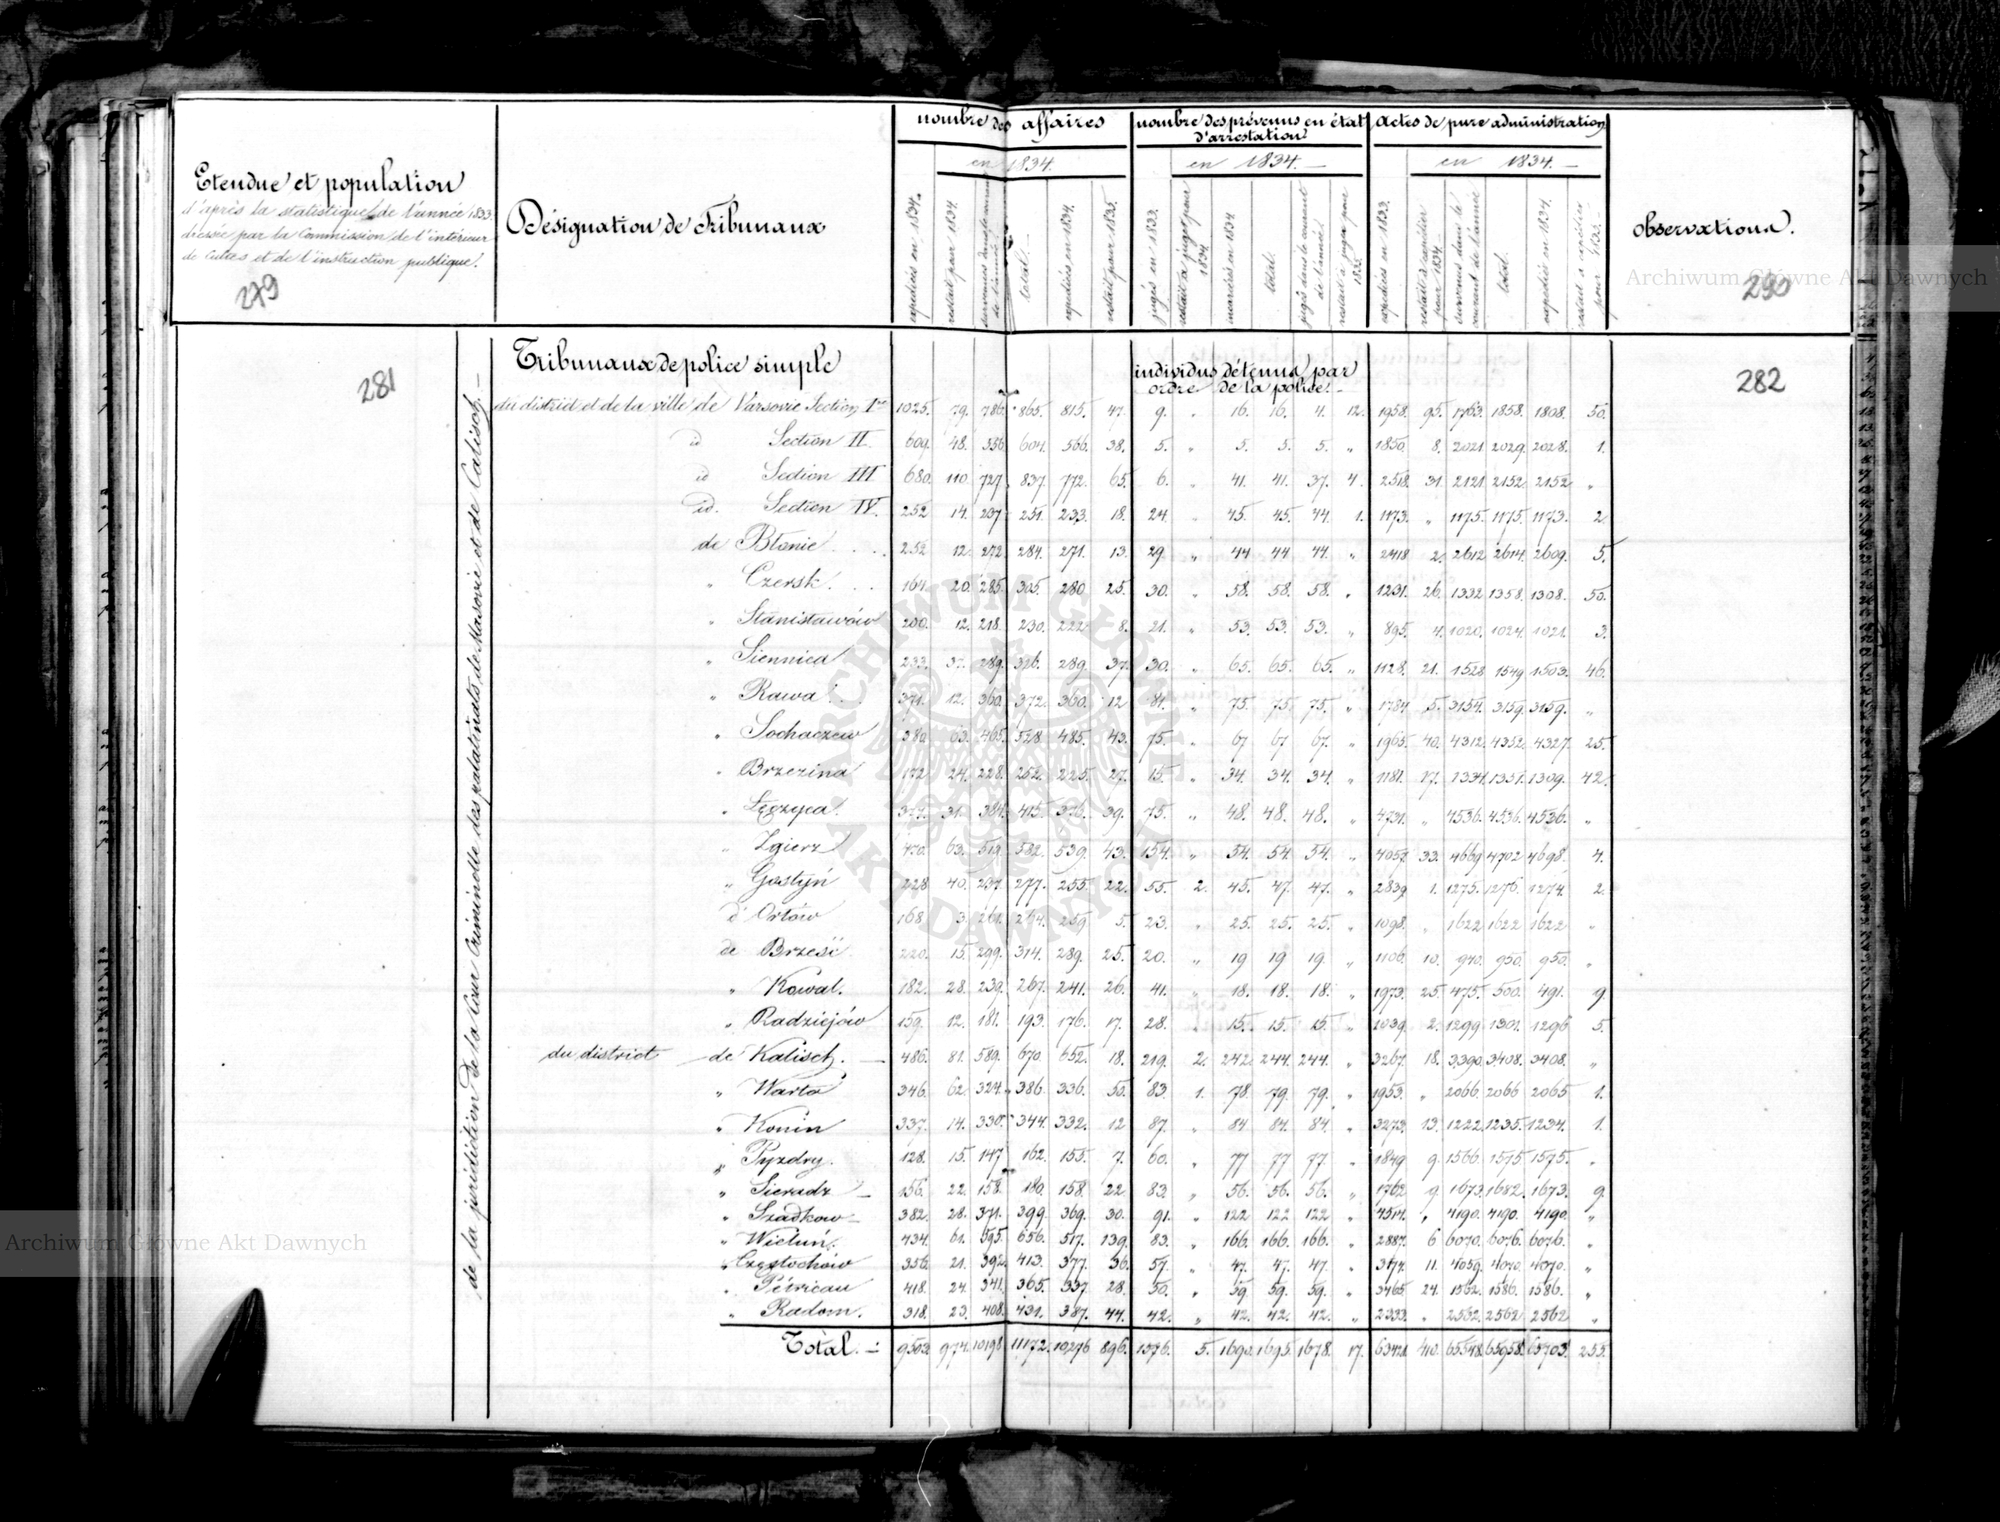 nombre des affaires
nombre des prévenus en état
d'arrestation
actes de pure administration
en 1834.
en 1834.
en 1834.
Etendue et population
d'après la statistique de l'année 1833
dressée par la Commission de l'intérieur
de Cultes et de l'instruction publique.
Désignation de Tribunaux
expediées en 1834.
restait pour 1834.
total.
expediées en 1834.
restait pour 1835.
jugés en 1833.
restait à juger pour
1834
incarcérés en 1834
total.
jugés dans le courant
de l'année
restait à juger pour
1835.
expediés en 1833.
restait à expédier
pour 1834
survenus dans le
courant de l'année
total.
expediés en 1834.
restait à expédier
pour 1835.
observations.
279
290
281
282
de la juridiction de la Cour Criminelle des palatinats de Masovie et de Calisch.
Tribunaux de police simple
individus détenus par
ordre de la police.
du district et de la ville de Varsovie Section Ire 1025. 79. 786. 865. 815. 47. 9. " 16. 16. 4. 12. 1958. 95. 1763. 1858. 1808. 50.
id Section II. 609. 48. 556. 604. 566. 38. 5. " 5. 5. 5. " 1850. 8. 2021 2029. 2028. 1.
id Section III 680. 110. 727. 837. 772. 65. 6. " 41. 41. 37. 4. 2518. 31. 2121 2152. 2152 "
id. Section IV. 252 14. 237 251. 233. 18. 24. " 45. 45. 44. 1. 1173. " 1175. 1175. 1173. 2
de Błonie 252 12. 272 284. 271. 13. 29. " 44 44 44. " 2418 2. 2612 2614. 2609. 5.
" Czersk. 164. 20. 285. 305. 280 25. 30. " 58. 58. 58. " 1231. 26. 1332 1358. 1308. 50.
" Stanisławów 200. 12. 218. 230. 222. 8. 21. " 53. 53. 53. " 895. 4. 1020. 1024. 1021. 3.
" Siennica 233. 37. 289. 326. 289. 37. 30. " 65. 65. 65. " 1128. 21. 1528 1549 1503. 46.
" Rawa 371. 12. 360. 372. 360. 12 81. " 75. 75. 75. " 1784. 5. 3154. 3159. 3159. "
" Sochaczew 380. 63. 465. 528. 485. 43. 75. " 67 67 67. " 1965. 40. 4312. 4352. 4327. 25.
" Brzezina 172 24. 228. 252. 225. 27. 15. " 34. 34. 34. " 1181. 17. 1334. 1351. 1309. 42.
" Łęczyca 31. 384. 415. 376. 39. 75. " 48. 48. 48. " 4731. " 4536. 4536. 4536. "
" Zgierz 63. 519. 582. 539. 43. 154. " 54. 54. 54. " 4057. 33. 4669 4702 4698. 4.
" Gostyń 228 40. 237. 277. 255. 22. 55. 2. 45. 47. 47. " 2839 1. 1275. 1276. 1274. 2.
d' Orłów 168. 3. 261. 264. 259 5. 23. " 25. 25. 25. " 1098. " 1622 1622 1622 "
de Brześć 220. 15. 299. 314. 289. 25. 20. " 19 19 19 " 1106. 10. 940. 950. 950. "
" Kowal. 182. 28. 239. 267. 241. 26. 41. " 18. 18. 18. " 1973. 25. 475. 500. 491. 9.
" Radziejów 159. 12. 181. 193. 176. 17. 28. " 15. 15. 15. " 1039. 2. 1299 1301. 1296 5.
du district de Kalisch. 486. 81. 589. 670. 652. 18. 219. 2. 242. 244. 244. " 3267. 18. 3390. 3408. 3408. "
" Warta 346. 62. 324. 386. 336. 50. 83. 1. 78. 79. 79. " 1953. " 2066. 2066 2065 1.
" Konin 337. 14. 330. 344. 332. 12 87. " 84 84. 84. " 3273. 13. 1222. 1235. 1234. 1.
" Pyzdry. 128. 15. 147 162. 155. 7. 60. " 77 77 77. " 1849 9. 1566. 1575 1575. "
" Sieradz 156. 22. 158. 180. 158. 22 83. " 56. 56. 56. " 1762 9. 1673. 1682. 1673. 9.
" Szadkow 382. 28. 371. 399. 369. 30. 91. " 122 122 122 " 4514. " 4190. 4190. 4190. "
" Wieluń. 434. 61. 595. 656. 517. 139. 83. " 166. 166. 166. " 2887. 6 6070. 6076. 6076. "
" Częstochów 356. 21. 392. 413. 377. 36. 57. " 47. 47. 47. " 3174. 11. 4059. 4070. 4070. "
" Pétricau 418. 24. 341. 365. 337 28. 50. " 59 59. 59. " 3465 24. 1562. 1586. 1586. "
" Radom. 318. 23. 408. 431. 387. 44. 42. " 42. 42. 42. " 2333. " 2562. 2562 2562 "
Total. 9503. 974. 10198 11172. 10276 896. 5. 1690. 1695. 1678. 17. 63421. 410. 65548. 65958. 65703. 255.
Archiwum Główne Akt Dawnych
Archiwum Główne Akt Dawnych
ARCHIWUM GŁÓWNE AKT DAWNYCH